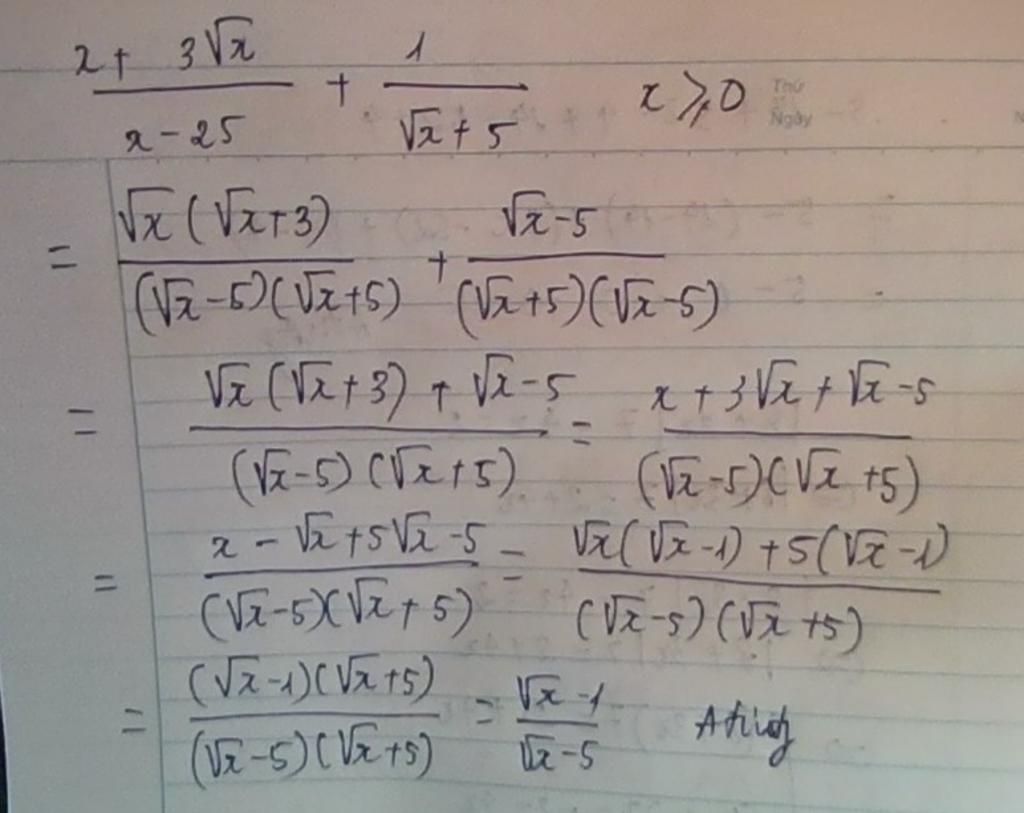 x + 3√x / x - 25 + 1 / √x + 5 x ≥ 0 Thứ Ngày
= √x (√x + 3) / (√x - 5)(√x + 5) + √x - 5 / (√x + 5)(√x - 5)
= √x (√x + 3) + √x - 5 / (√x - 5)(√x + 5) = x + 3√x + √x - 5 / (√x - 5)(√x + 5)
= x - √x + 5√x - 5 / (√x - 5)(√x + 5) = √x (√x - 1) + 5(√x - 1) / (√x - 5)(√x + 5)
= (√x - 1)(√x + 5) / (√x - 5)(√x + 5) = √x - 1 / √x - 5